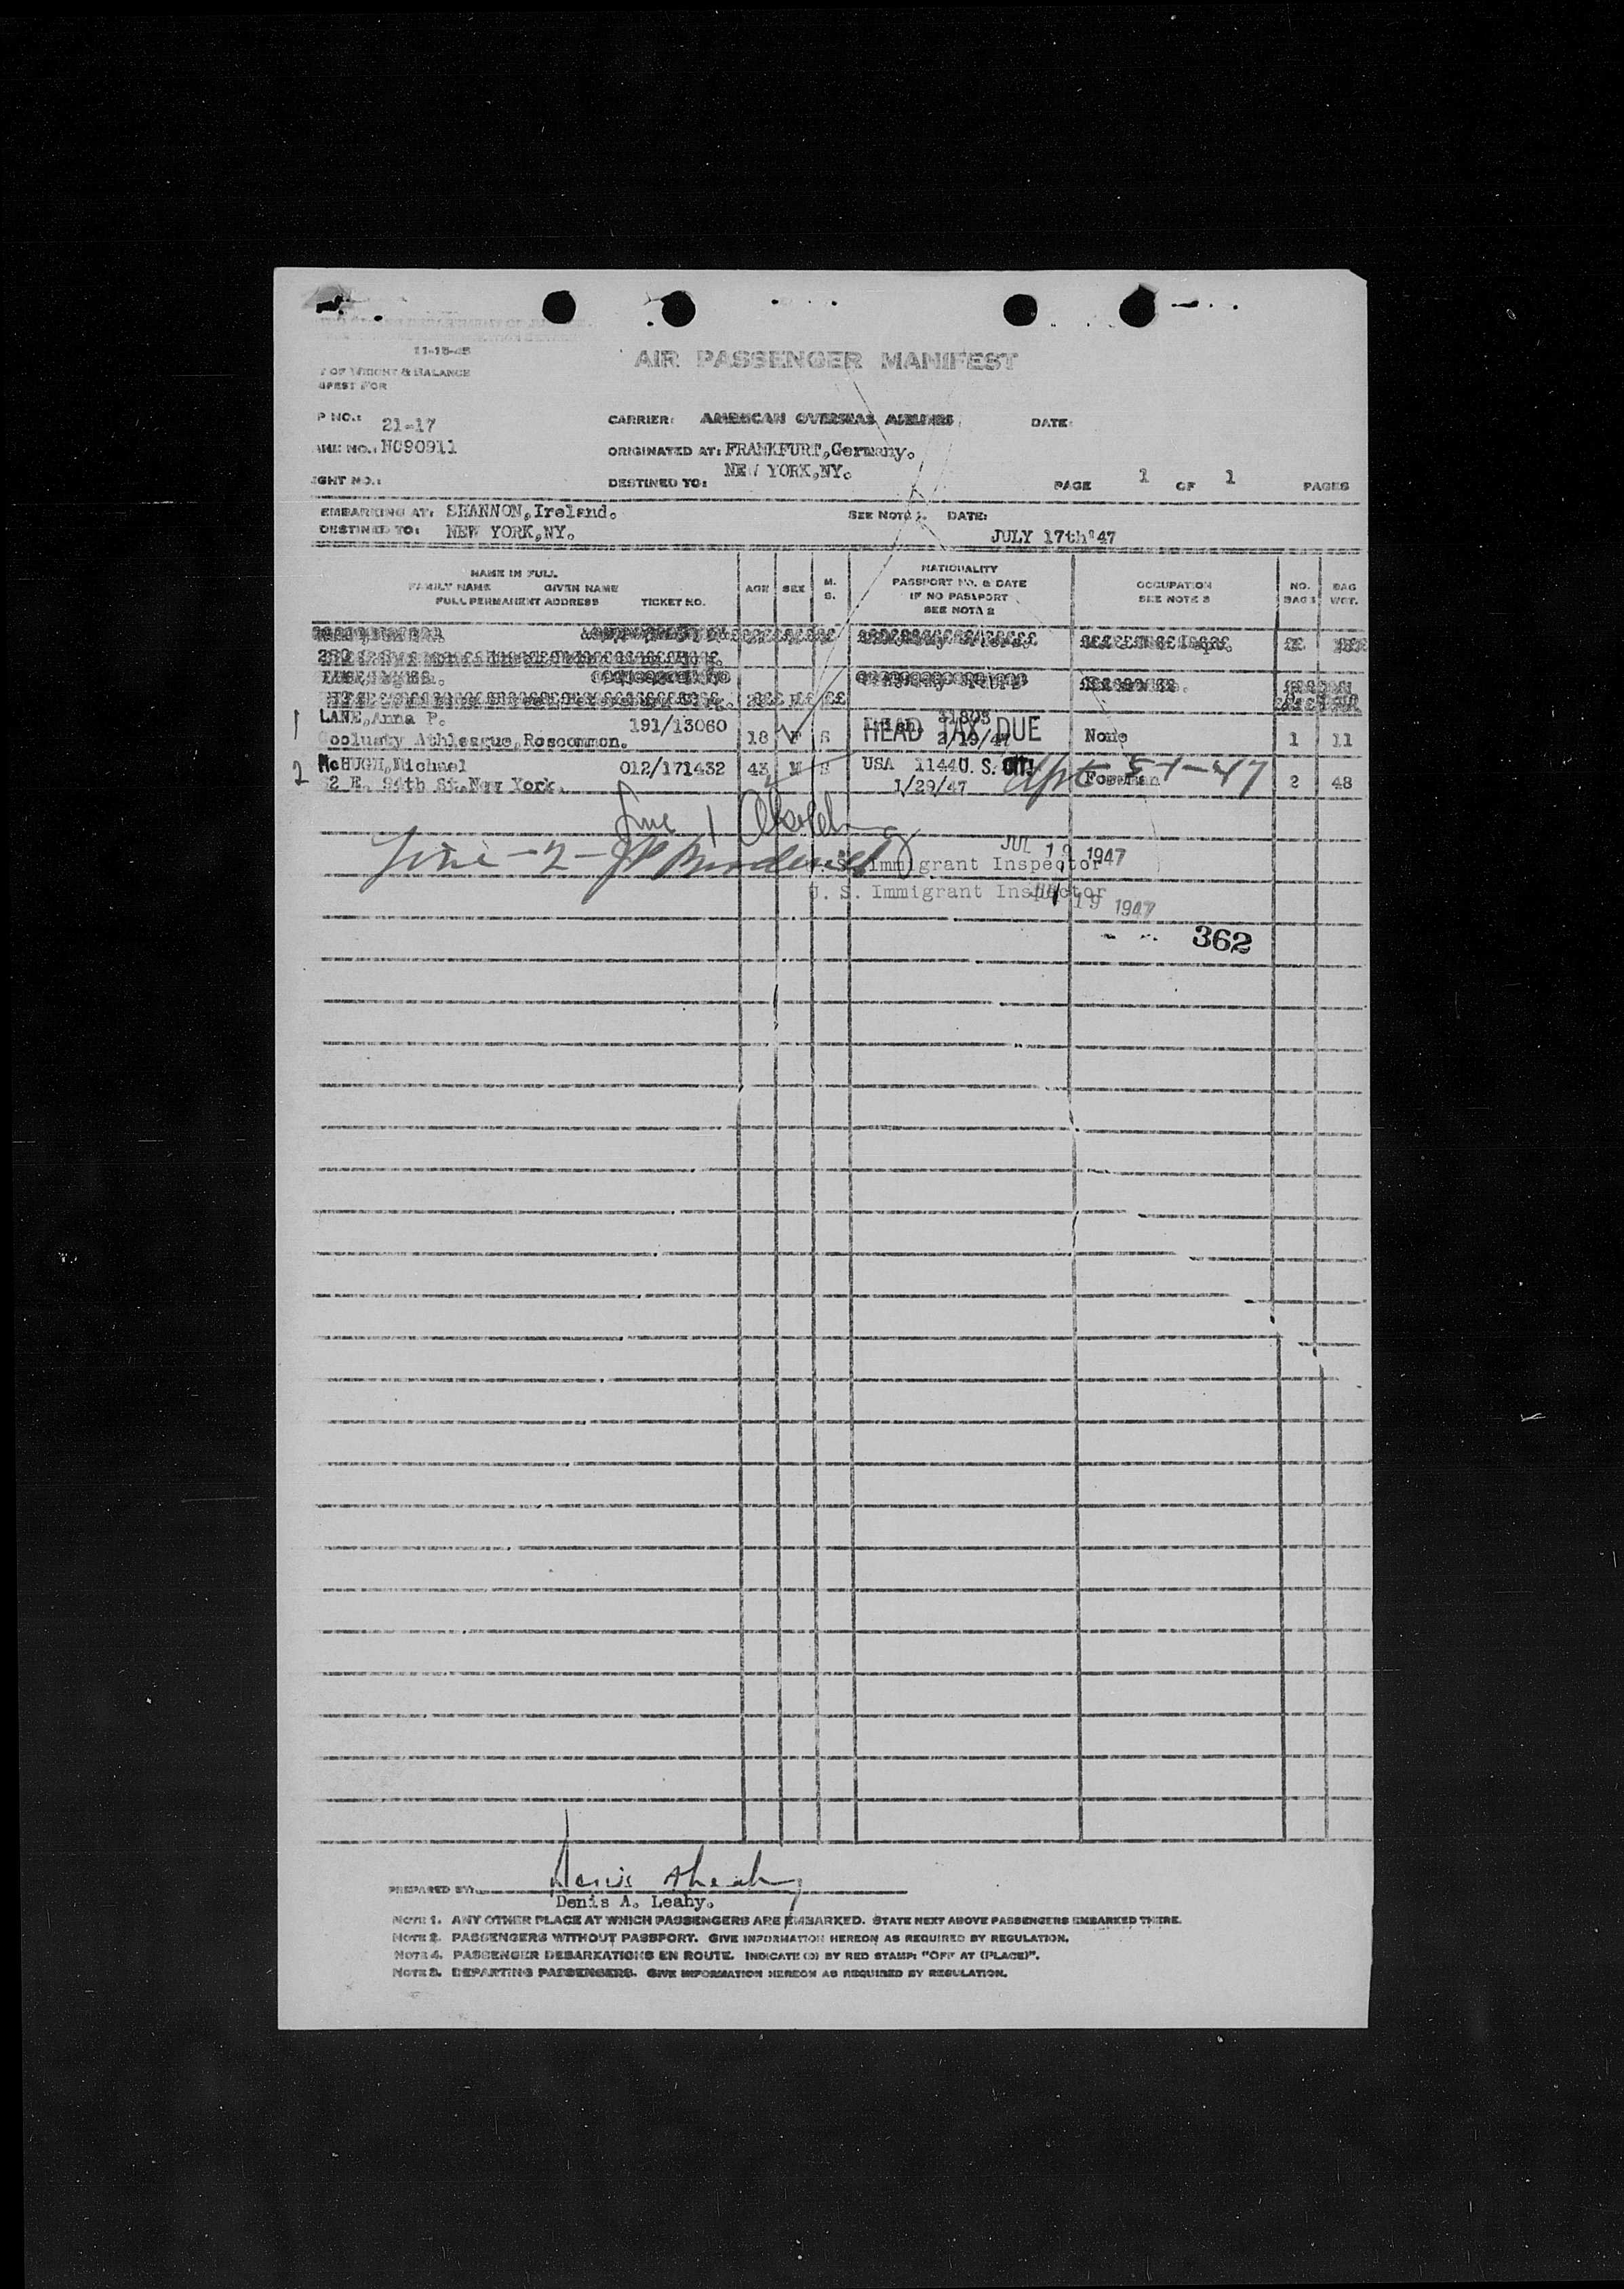 11-15-45
AIR PASSENGER MANIFEST
OF WEIGHT & BALANCE
FEST FOR
P NO.: 21-17
CARRIER: AMERICAN OVERSEAS AIRLINES
DATE:
NO.: NC90911
ORIGINATED AT: FRANKFURT,Germany.
GHT NO.:
DESTINED TO: NEW YORK,NY.
PAGE 1 OF 1 PAGES
EMBARKING AT: SHANNON,Ireland.
SEE NOTE 1. DATE:
DESTINED TO: NEW YORK,NY.
JULY 17th'47
NAME IN FULL
FAMILY NAME GIVEN NAME
FULL PERMANENT ADDRESS TICKET NO.
AGE
SEX
M.
S.
NATIONALITY
PASSPORT NO. & DATE
IF NO PASSPORT
SEE NOTE 2
OCCUPATION
SEE NOTE 3
NO.
BAGS
BAG
WGT.
1 LANE,Anna P. 191/13060 18 F S
Athleague,Roscommon.
HEAD TAX DUE
2/19/47
None 1 11
2 McHUGH,Michael 012/171432 43 M S USA 1144 U. S. CIT. Foreman 2 48
2 E. 94th St.New York. 1/29/47
Line 1
Line-2-
JUL 19 1947
U. S. Immigrant Inspector
U. S. Immigrant Inspector
19 1947
362
PREPARED BY:
Denis A. Leahy.
NOTE 1. ANY OTHER PLACE AT WHICH PASSENGERS ARE EMBARKED. STATE NEXT ABOVE PASSENGERS EMBARKED THERE.
NOTE 2. PASSENGERS WITHOUT PASSPORT. GIVE INFORMATION HEREON AS REQUIRED BY REGULATION.
NOTE 4. PASSENGER DEBARKATIONS EN ROUTE. INDICATE (D) BY RED STAMP: "OFF AT (PLACE)".
NOTE 3. DEPARTING PASSENGERS. GIVE INFORMATION HEREON AS REQUIRED BY REGULATION.